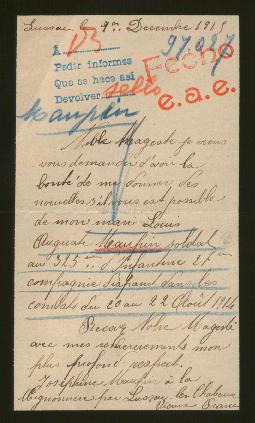 Lussac, le 9 Décembre 1915
A 13
97.027
Pedir informes
Que se hace así
Devolver
sello
Fecho
e.a.e.
Maupin
Noble Magesté je viens
vous demander d'avoir la
bonté de me donner des
nouvelles s'il vous est possible
de mon mari Louis
Auguste Maupin soldat
au 325 d'Infanterie 21
compagnie disparu dans les
combats du 20 au 22 Août 1914
Recevez Notre Magesté
avec mes remerciements mon
plus profond respect.
Joséphine Maupin à la
par Lussac les Châteaux
Vienne France